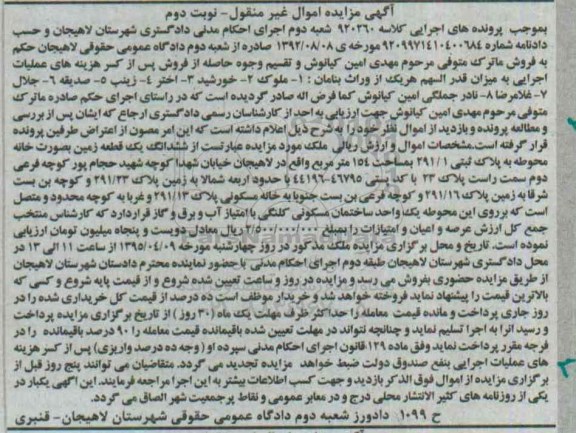 آگهی مزایده اموال غیر منقول- نوبت دوم
بموجب پرونده های اجرایی کلاسه ۹۲۰۲۶۰ شعبه دوم اجرای احکام مدنی دادگستری شهرستان لاهیجان و حسب
دادنامه شماره ۹۲۰۹۹۷۱۴۱۰۴۰۰۶۸۴ مورخه ی ۱۳۹۲/۰۸/۰۸ صادره از شعبه دوم دادگاه عمومی حقوقی لاهیجان حکم
به فروش ماترک متوفی مرحوم مهدی امین کیانوش و تقسیم وجوه حاصله از فروش پس از کسر هزینه های عملیات
اجرایی به میزان قدر السهم هریک از وراث بنامان : ۱- ملوک ۲- خورشید ۳- اختر ۴- زینب ۵- صدیقه ۶- جلال
۷- غلامرضا ۸- نادر جملگی امین کیانوش کما فرض اله صادر گردیده است که در راستای اجرای حکم صادره ماترک
متوفی مرحوم مهدی امین کیانوش جهت ارزیابی به احد از کارشناسان رسمی دادگستری ارجاع که ایشان پس از بررسی
و مطالعه پرونده و بازدید از اموال نظر خود را به شرح ذیل اعلام داشته است که این امر مصون از اعتراض طرفین پرونده
قرار گرفته است.مشخصات اموال و ارزش ریالی ملک مورد مزایده عبارتست از ششدانگ یک قطعه زمین بصورت خانه
محوطه به پلاک ثبتی ۲۹۱/۱ بمساحت ۱۵۴ متر مربع واقع در لاهیجان خیابان شهدا کوچه شهید حجام پور کوچه فرعی
دوم سمت راست پلاک ۲۳ با کد پستی ۴۶۷۹۵-۴۴۱۹۶ با حدود اربعه شمالا به زمین پلاک ۲۹۱/۲۳ و کوچه بن بست
شرقا به زمین پلاک ۲۹۱/۱۶ و کوچه فرعی بن بست جنوبا به خانه مسکونی پلاک ۲۹۱/۱۳ و غربا به کوچه محدود و متصل
است که برروی این محوطه یک واحد ساختمان مسکونی کلنگی با امتیاز آب و برق و گاز قراردارد که کارشناس منتخب
جمع کل ارزش عرصه و اعیان و امتیازات را بمبلغ ۲/۵۰۰/۰۰۰/۰۰۰ ریال معادل دویست و پنجاه میلیون تومان ارزیابی
نموده است. تاریخ و محل برگزاری مزایده ملک مذکور در روز چهارشنبه مورخه ۱۳۹۵/۰۴/۰۹ از ساعت ۱۱ الی ۱۳ در
محل دادگستری شهرستان لاهیجان طبقه دوم اجرای احکام مدنی با حضور نماینده محترم دادستان شهرستان لاهیجان
از طریق مزایده حضوری بفروش می رسد و مزایده در روز و ساعت تعیین شده شروع و از قیمت پایه شروع و کسی که
بالاترین قیمت را پیشنهاد نماید فروخته خواهد شد و خریدار موظف است ده درصد از قیمت کل خریداری شده را در
روز جاری پرداخت و مانده قیمت معامله را حداکثر ظرف مهلت یک ماه (۳۰ روز ) از تاریخ برگزاری مزایده پرداخت
و رسید انرا به اجرا تسلیم نماید و چنانچه نتواند در مهلت تعیین شده باقیمانده قیمت معامله را ۹۰ درصد باقیمانده را در
فرجه مقرر پرداخت نماید وفق ماده ۱۲۹ قانون اجرای احکام مدنی سپرده او ( وجه ده درصد واریزی) پس از کسر هزینه
های عملیات اجرایی بنفع صندوق دولت ضبط خواهد مزایده تجدید می گردد. متقاضیان می توانند پنج روز قبل از
برگزاری مزایده از اموال فوق الذکر بازدید و جهت کسب اطلاعات بیشتر به این اجرا مراجعه فرمایند. این اگهی یکبار در
یکی از روزنامه های کثیر الانتشار محلی درج و در معابر عمومی و نقاط پرجمعیت شهر الصاق می گردد.
ح ۱۰۹۹ دادورز شعبه دوم دادگاه عمومی حقوقی شهرستان لاهیجان- قنبری